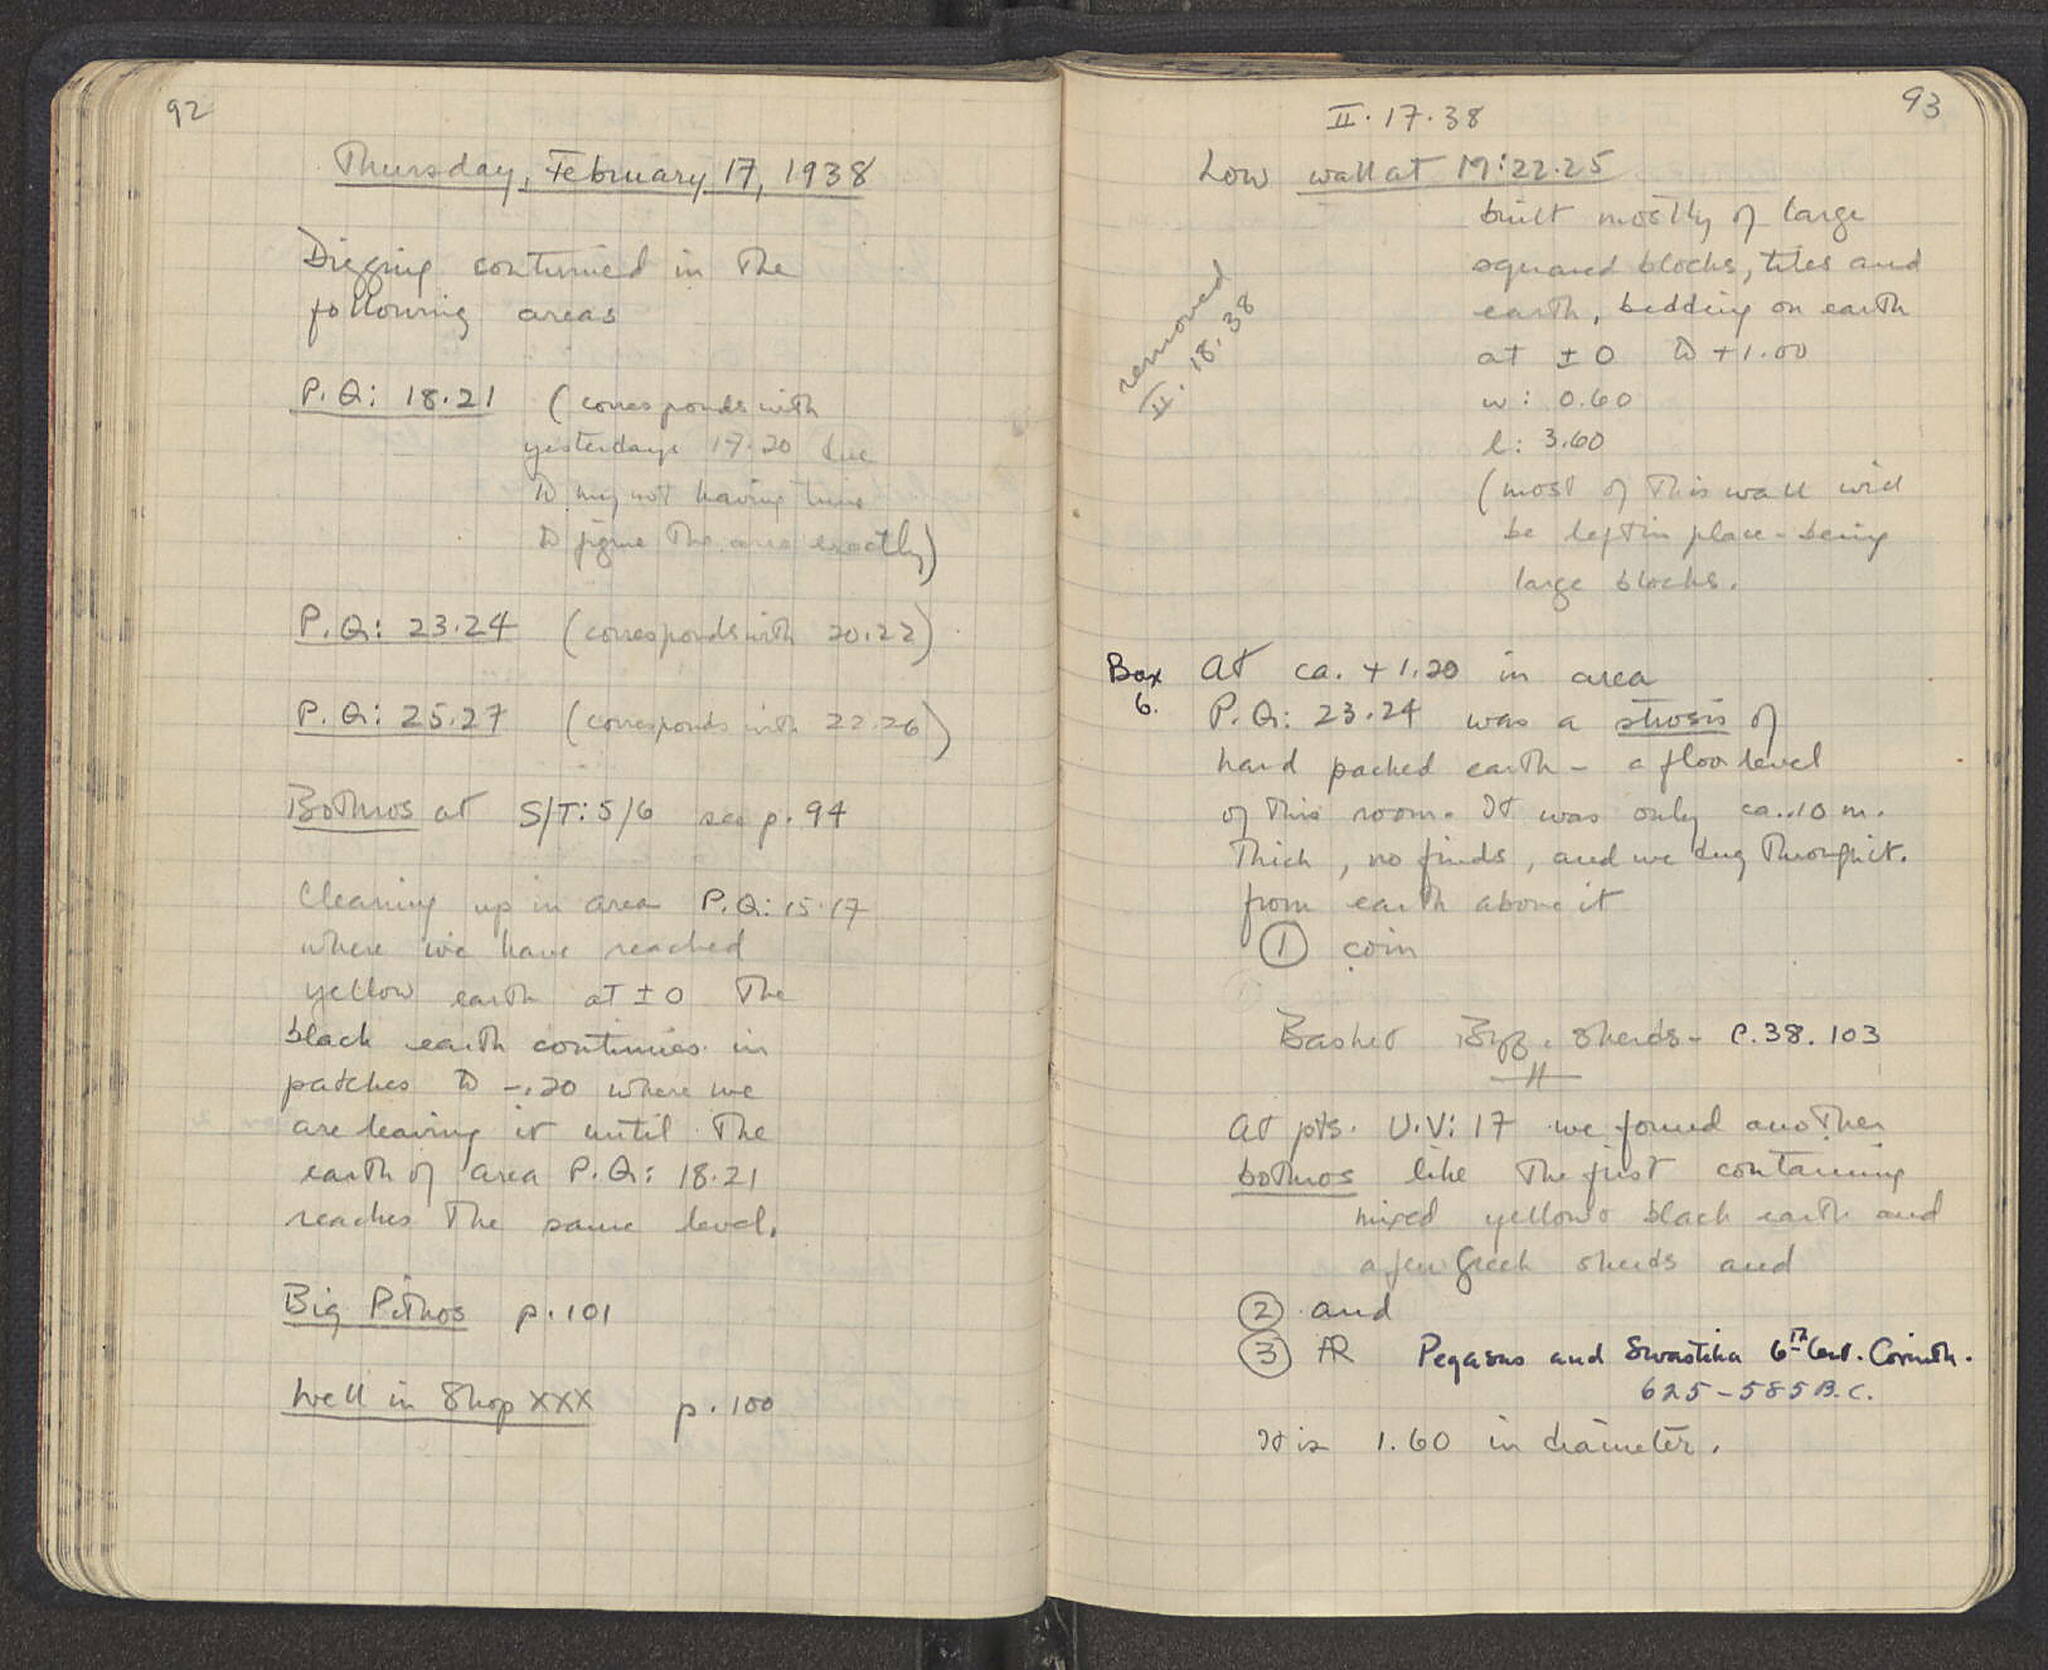 92
Thursday, February 17, 1938
Digging continued in the
following areas
P.Q: 18.21 (corresponds with
yesterdays 17.20 due
to my not having time
to figure the area exactly)
P.Q: 23.24 (corresponds with 20.22)
P.Q: 25.27 (corresponds with 22.26)
Bothros at S/T: 5/6 see p. 94
Cleaning up in area P.Q: 15.17
where we have reached
yellow earth at ± 0 The
black earth continues in
patches to -.20 where we
are leaving it until the
earth of area P.Q: 18.21
reaches the same level.
Big Pithos p. 101
Well in Shop XXX p. 100
93
II. 17. 38
Low wall at M: 22.25
built mostly of large
squared blocks, tiles and
earth, bedding on earth
at ± 0 to +1.00
w: 0.60
l: 3.60
(most of this wall will
be left in place - being
large blocks.
removed
II. 18. 38
Box
6.
At ca. +1.20 in area
P.Q: 23.24 was a strosis of
hard packed earth - a floor level
of this room. It was only ca. .10 m.
thick, no finds, and we dug through it.
from earth above it
① coin
Basket Byz. sherds - C.38.103
At pts. U.V: 17 we found another
bothros like the first containing
mixed yellow & black earth and
a few Greek sherds and
② and
③ AR Pegasus and Swastika 6th Cent. Corinth.
625-585 B.C.
It is 1.60 in diameter.